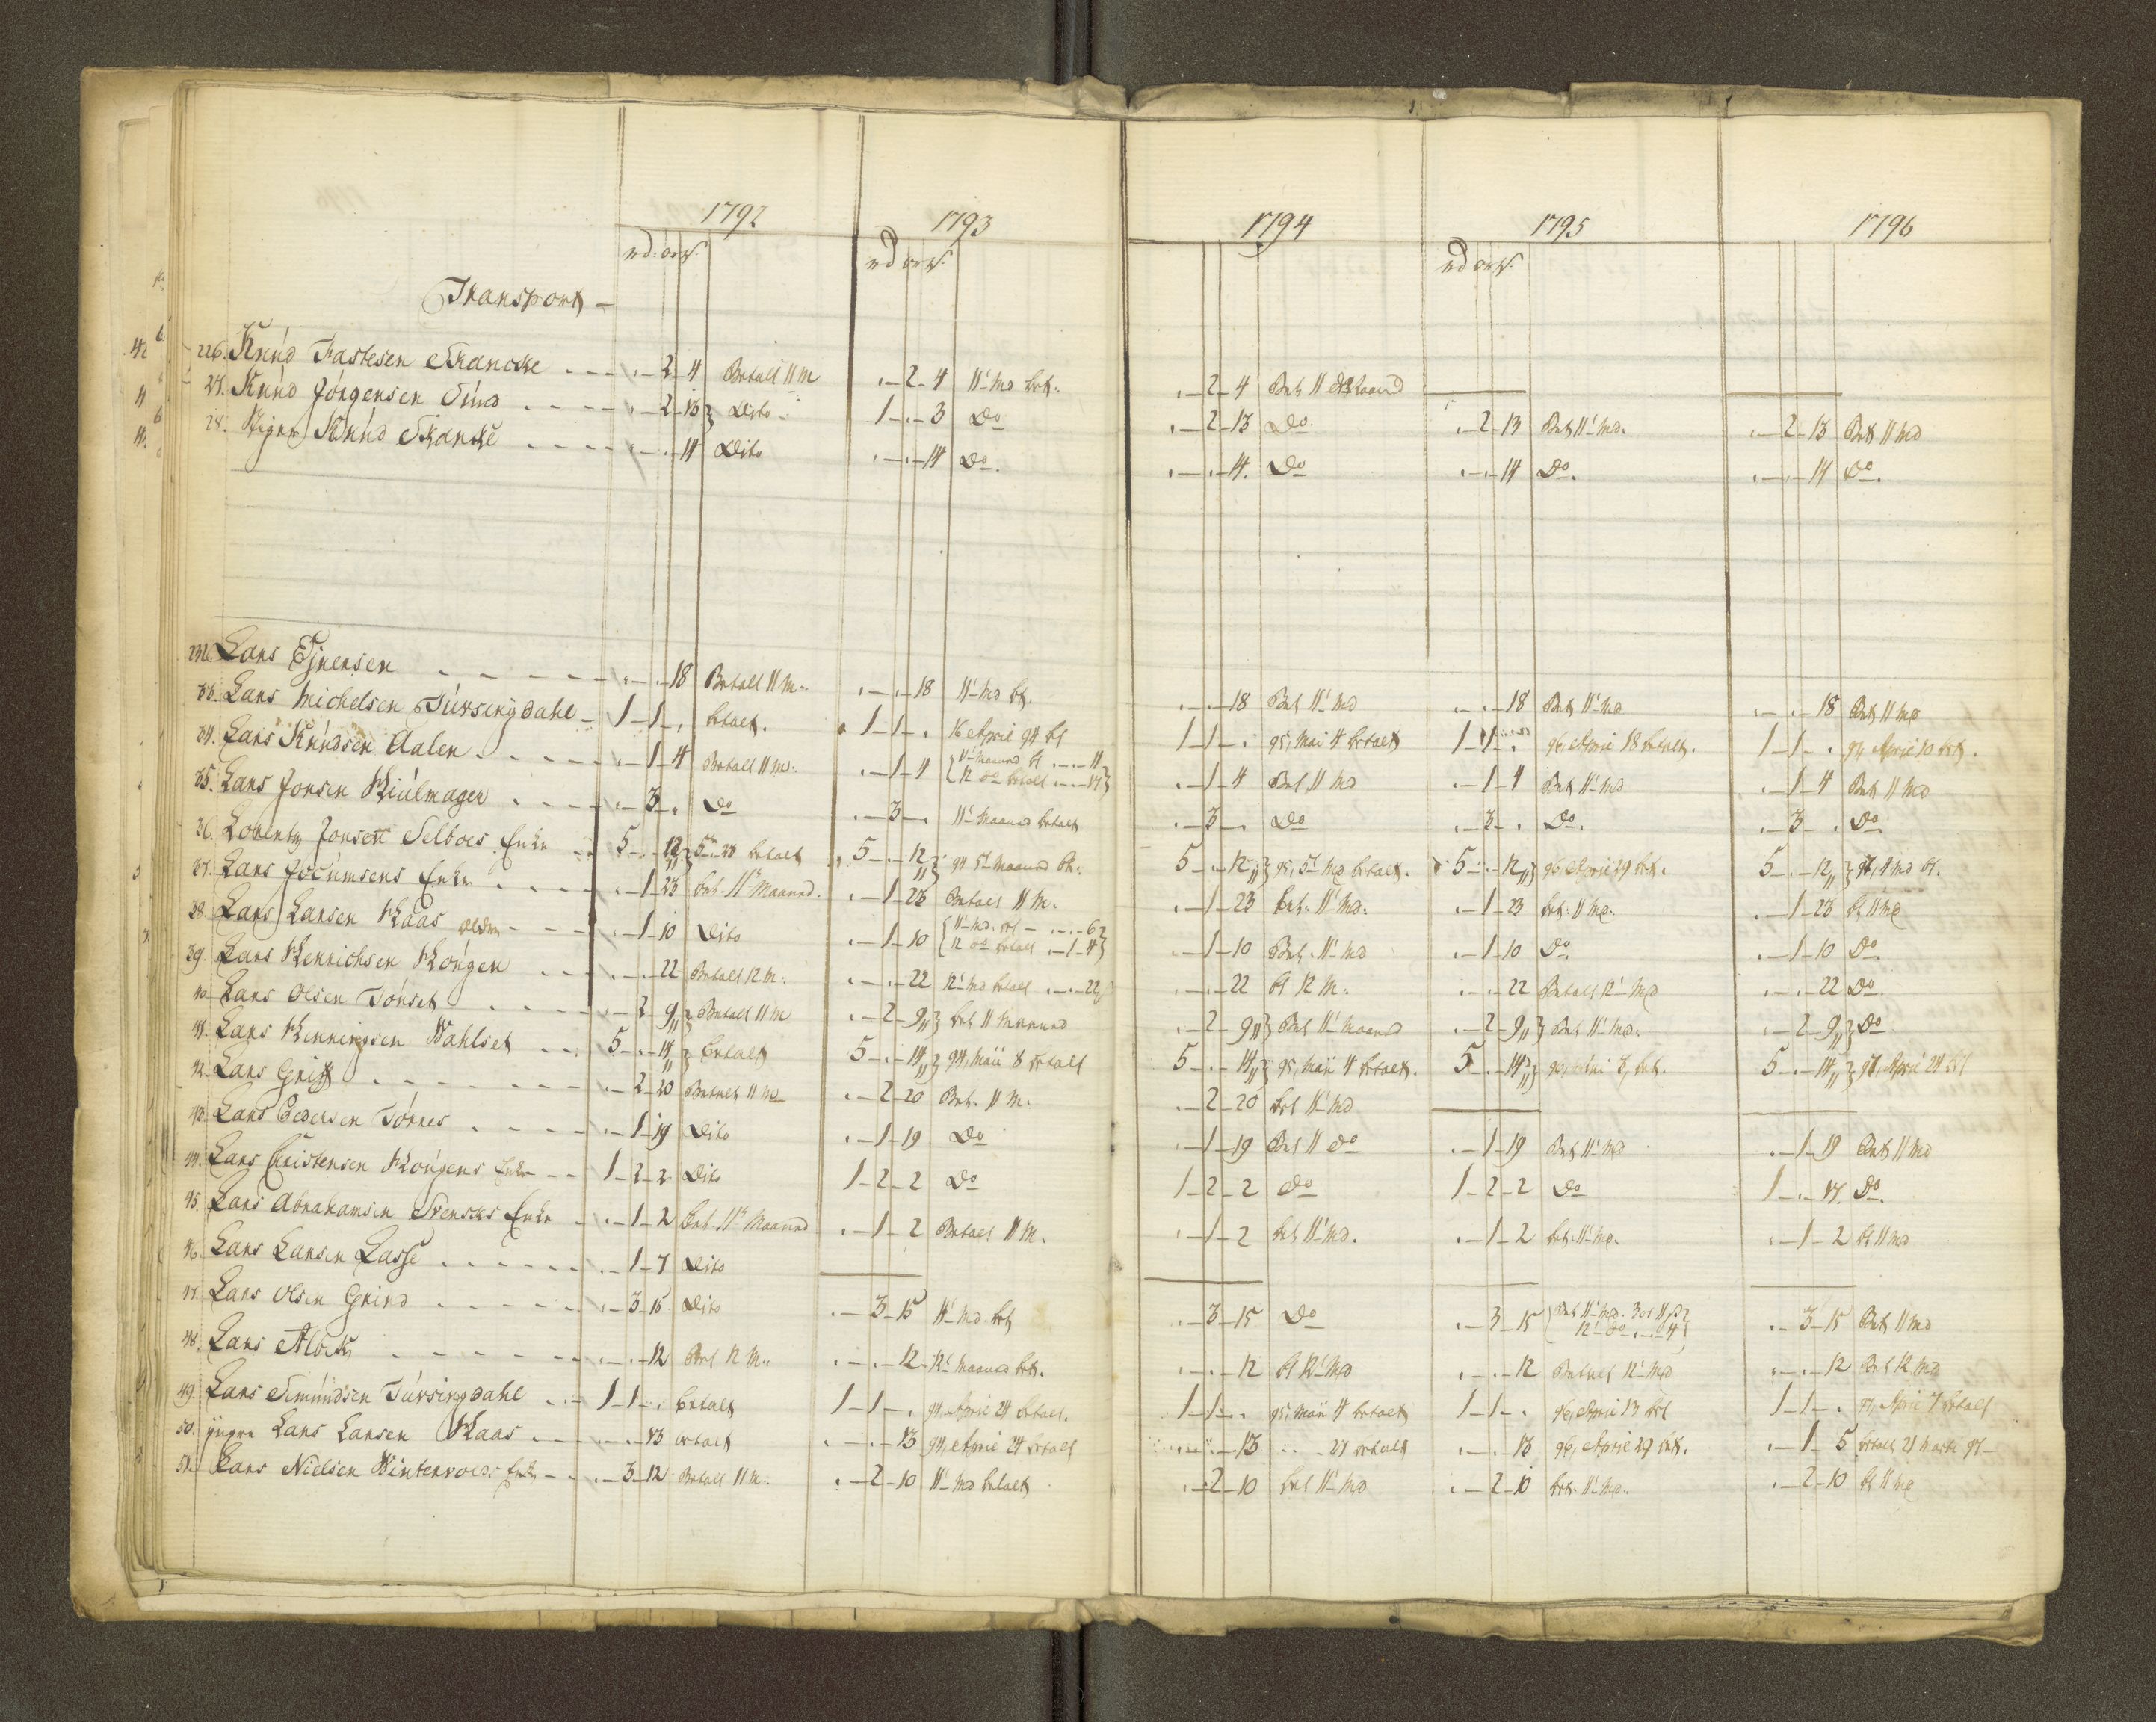 1792 1793 1794 1795 1796
rd ort ß. rd ort ß. rd ort ß.
Transport –
226. Knúd Fastesen Skancke - - - „ – 2 – 4 Betalt 11 M „ – 2 – 4 11' Md bet: „ – 2 – 4 Bet 11 Maaned
27. Knúd Jórgensen Súnd - - - „ – 2 – 13 Dito 1 – „ – 3 Do „ – 2 – 13 Do „ – 2 – 13 Bet 11' Md. „ – 2 – 13 Bet 11 Md
28. Knúd Skancke - - - „ – „ – 14 Dito „ – „ – 14 Do. „ – „ – 14. Do „ – „ – 14 Do. „ – „ – 14 Do.
232. Lars Ejnersen - - - „ – „ – 18 Betalt 11 M. „ – „ – 18 11' Md bt. „ – „ – 18 Bet 11' Md „ – „ – 18 Bet 11' Md „ – „ – 18 Bet 11 Md
33. Lars Michelsen Túfsingdahl – 1 – 1 – „ betalt. 1 – 1 – „ 16 April 94 bt 1 – 1 – „ 95, Mai 4 betalt 1 – 1 – „ 96, April 18 betalt. 1 – 1 – „ 97, April 10 bet.
34. Lars Knúdsen Aalen - - - „ – 1 – 4 Betalt 11 M. „ – 1 – 4 { 11' Maaned bt „ – „ – 11
12 do betalt „ – „ – 17 } „ – 1 – 4 Bet 11 Md „ – 1 – 4 Bet 11' Md „ – 1 – 4 Bet 11 Md
35. Lars Jonsen Hiúlmager - - - „ – 3 – „ Do „ – 3 – „ 11' Maaned betalt „ – 3 – „ Do „ – 3 – „ Do. „ – 3 – „ Do
36. Lorentz Jonsen Selboes Enke - - 5 – „ – 12 betalt 5 – „ – 12 } 94 5' Maaned bt. 5 – „ – 12 } 95, 5' Md betalt. 5 – „ – 12 } 96 April 29 bet. 5 – „ – 12 } 97, 4 Md bt.
37. Lars Jocúmsens Enke - - - „ – 1 – 23 bet. 11' Maaned. „ – 1 – 23 Betalt 11 M. „ – 1 – 23 bet. 11' Md. „ – 1 – 23 bet. 11 Md. „ – 1 – 23 bt 11 Md
38. Lars Larsen Haas - - - „ – 1 – 10 Dito „ – 1 – 10 { 11' Md. bt – „ – „ – 6
12 do betalt „ – 1 – 4 } „ – 1 – 10 Bet. 11' Md „ – 1 – 10 Do „ – 1 – 10 Do.
39. Lars Henrichsen Kongen - - - „ – „ – 22 Betalt 12 M. „ – „ – 22 12' Md betalt „ – „ – 22 „ – „ – 22 bt 12 M. „ – „ – 22 Betalt 12' Md „ – „ – 22 Do.
40. Lars Olsen Tónset - - - „ – 2 – 9 } Betalt 11 M „ – 2 – 9 } bet 11 Maaned „ – 2 – 9 } Bet 11' Maaned „ – 2 – 9 } Bet 11' Md. „ – 2 – 9 } Do
41. Lars Henningsen Wahlset - - 5 – „ – 14 } betalt 5 – „ – 14 } 94, Maii 8 betalt 5 – „ – 14 } 95, Maii 4 betalt. 5 – „ – 14 } 96, Mai bet. 5 – „ – 14 } 97, April 24 bet
42. Lars Griff - - - „ – 2 – 20 Betalt 11 Md „ – 2 – 20 Bet. 11 M. „ – 2 – 20 bet 11' Md
43. Lars Pedersen Tórres - - - „ – 1 – 19 Dito „ – 1 – 19 Do „ – 1 – 19 Bet 11 do „ – 1 – 19 Bet 11' Md „ – 1 – 19 Bet 11 Md
44. Lars Christensen Kongens Enke - - 1 – 2 – 2 Dito 1 – 2 – 2 Do 1 – 2 – 2 do 1 – 2 – 2 Do 1 – „ – 17. Do.
45. Lars Abrahamsen Svenskes Enke - „ – 1 – 2 bet. 11' Maaned „ – 1 – 2 Betalt 11 M. „ – 1 – 2 bet 11' Md. „ – 1 – 2 bet. 11' Md. „ – 1 – 2 bt 11 Md
46. Lars Larsen Lasse - - - „ – 1 – 7 Dito
47. Lars Olsen Grind - - - „ – 3 – 15 Dito „ – 3 – 15 11' Md. bet „ – 3 – 15 Do „ – 3 – 15 { Bet 11' Md. 3 ort 11 ß
12' do „ – „ – 4 } „ – 3 – 15 Bet 11 Md
48. Lars - - - „ – „ – 12 Bet 12 M. „ – „ – 12 12' Maaned bet. „ – „ – 12 bt 12' Md „ – „ – 12 Betalt 12' Md „ – „ – 12 Bet 12 Md
49. Lars Simúndsen Túfsingdahl - - 1 – 1 – „ betalt 1 – 1 – „ 94, April 24 betalt. 1 – 1 – „ 95, Maii 4 betalt 1 – 1 – „ 96, April 13 bet 1 – 1 – „ 97, April 7 betalt
50. yngre Lars Larsen Haas - - - „ – „ – 13 betalt „ – „ – 13 94, April 24 betalt „ – „ – 13 „ 27 betalt „ – „ – 13 96, April 29 bet. „ – 1 – 5 betalt 21 Marti 97 –
51. Lars Nielsen Wintervolds Enke - - „ – 3 – 12 Betalt 11 M. „ – 2 – 10 11' Md betalt „ – 2 – 10 bet 11' Md „ – 2 – 10 bet. 11' Md. „ – 2 – 10 bt 11 Md